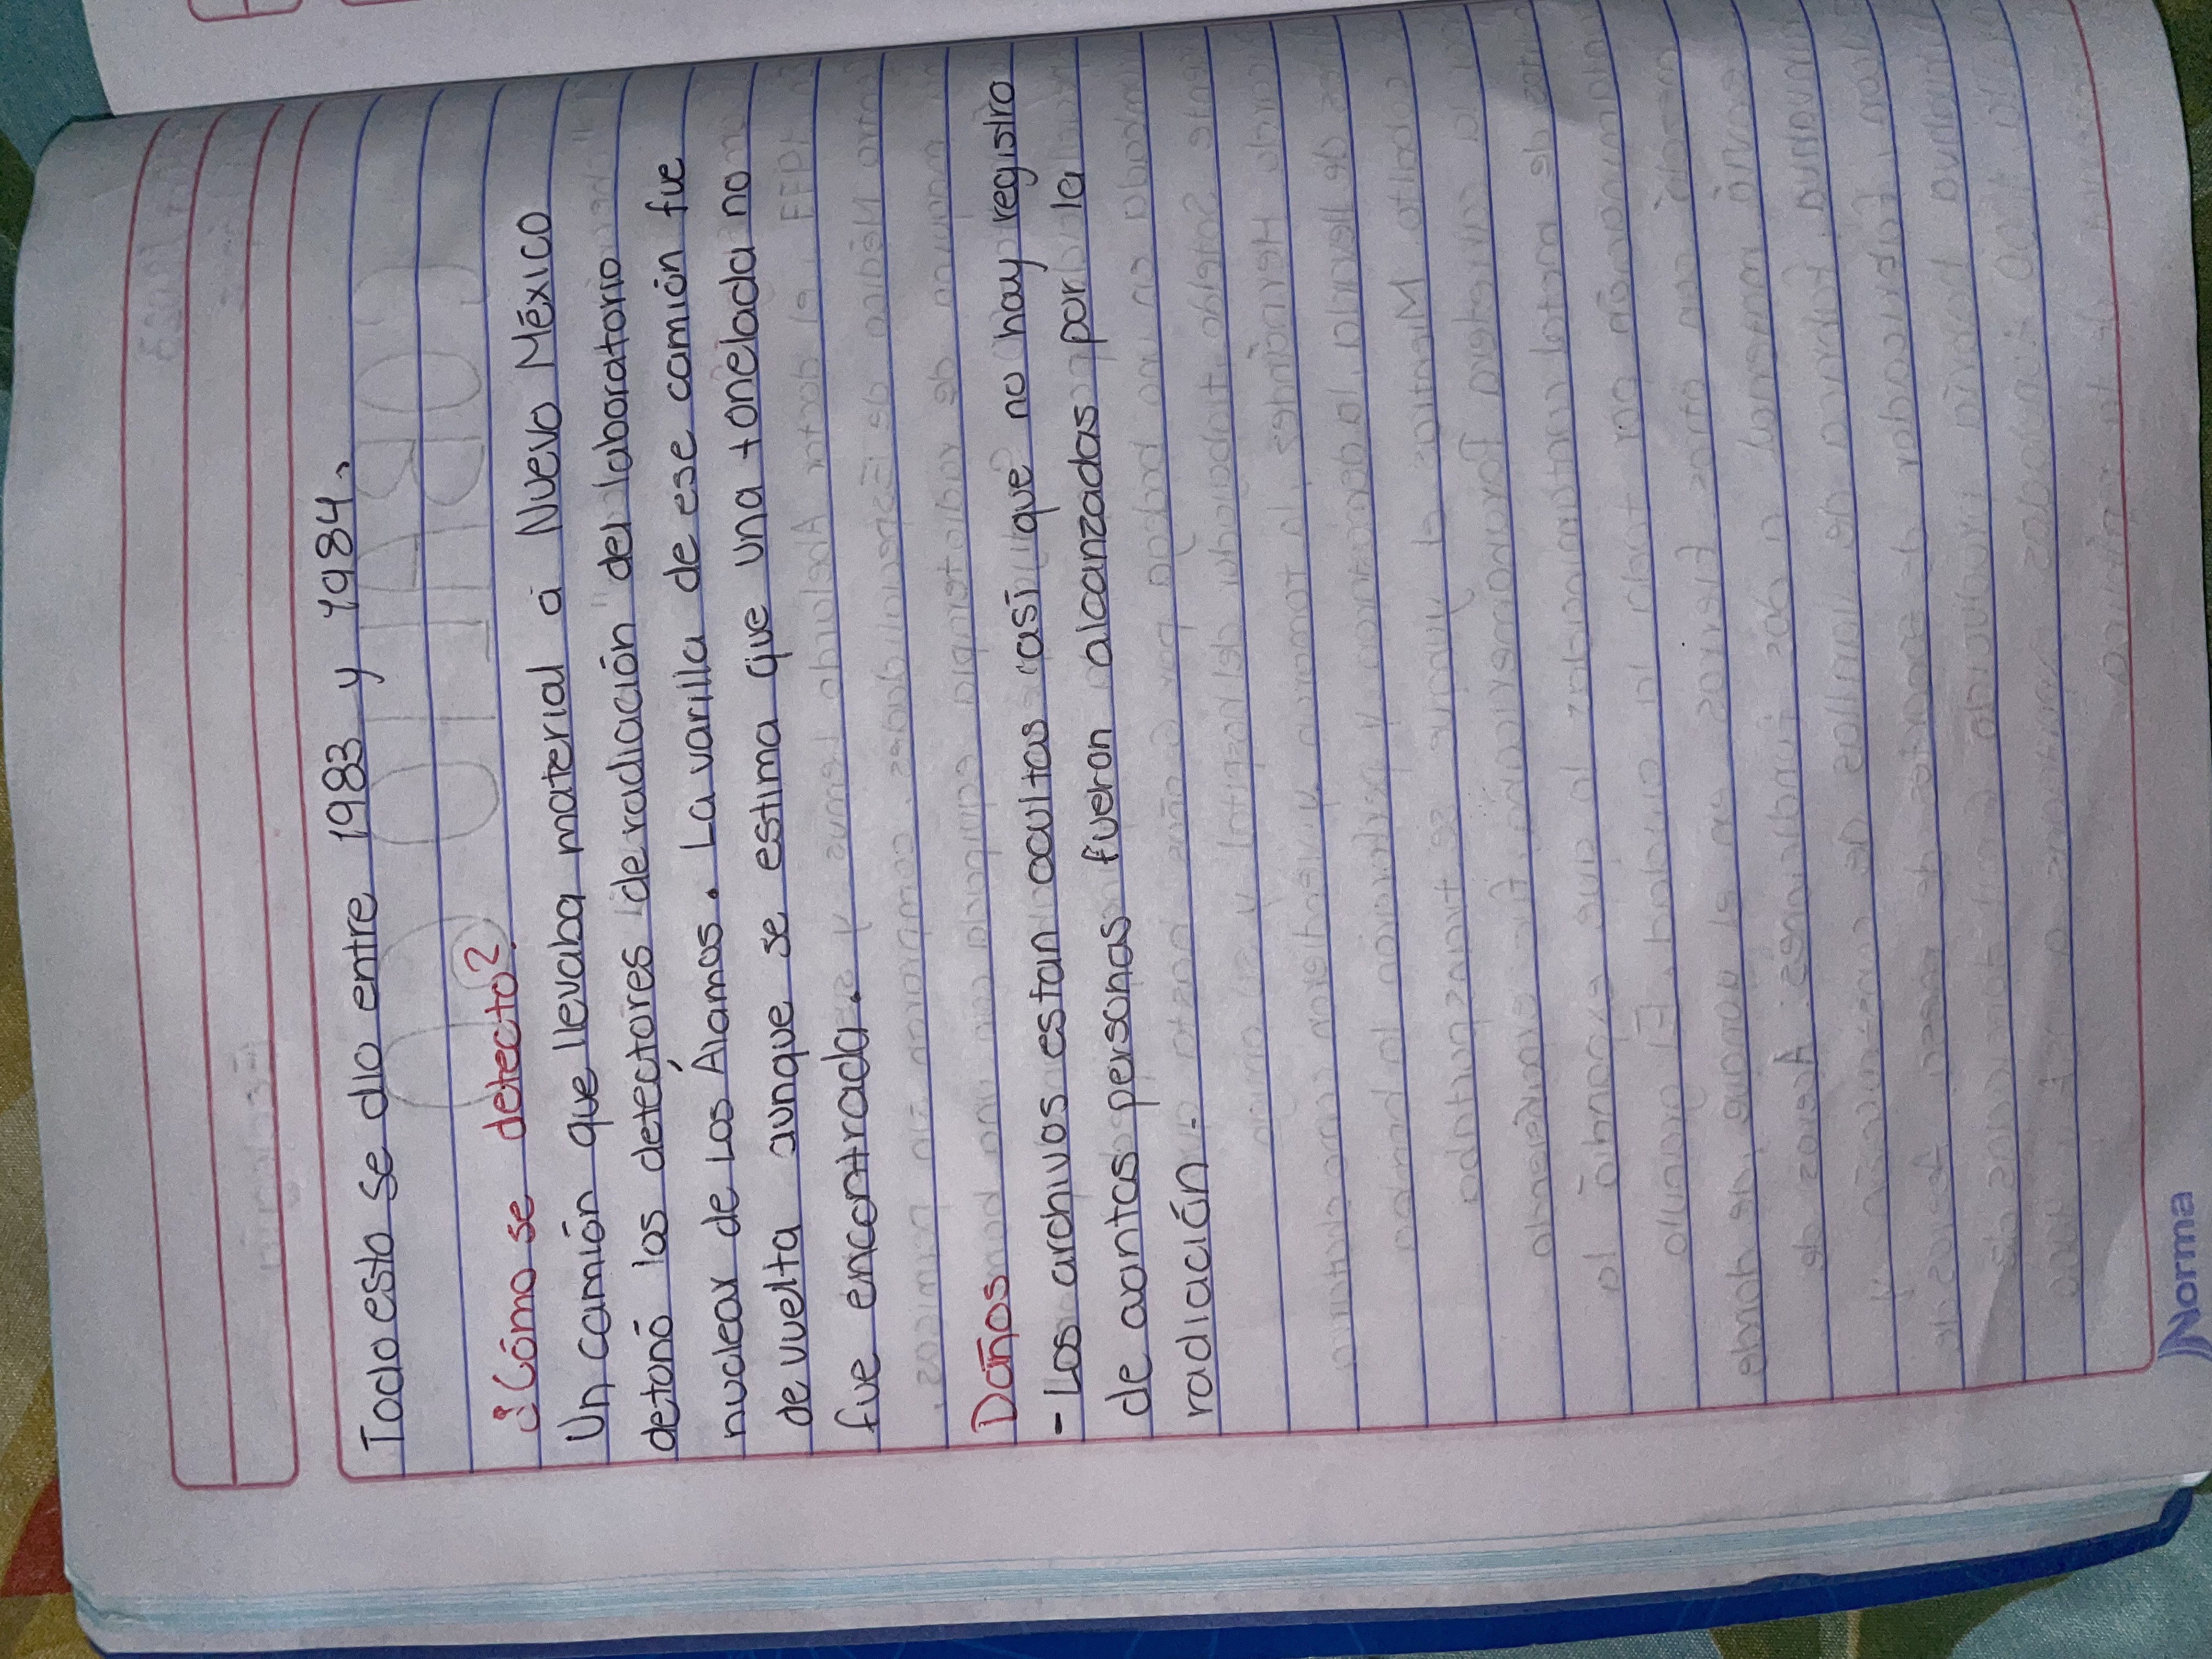 Todo esto se dio entre 1983 y 1984.
¿Cómo se detecto?
Un camión que llevaba material a Nuevo México
detonó los detectores de radiación del laboratorio
nuclear de Los Álamos. La varilla de ese camión fue
de vuelta aunque se estima que una tonelada no
fue encontrada.
Daños
- Los archivos estan ocultos casi que no hay registro
de cuantas personas fueron alcanzadas por la
radiación.
Norma